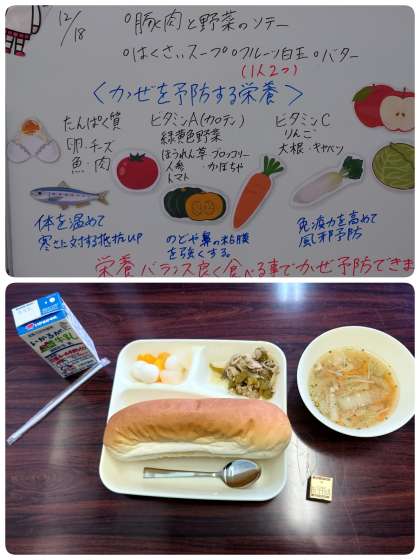 12/18
◦豚肉と野菜のソテー
◦はくさいスープ ◦フルーツ白玉 ◦バター
(1人2つ)
<かぜを予防する栄養>
たんぱく質
卵・チーズ
魚・肉
体を温めて
寒さに対する抵抗up
ビタミンA(カロテン)
緑黄色野菜
ほうれん草・ブロッコリー
人参・かぼちゃ
トマト
のどや鼻の粘膜
を強くする。
ビタミンC
りんご
大根・キャベツ
免疫力を高めて
風邪予防
栄養バランス良く食べる事でかぜ予防できま